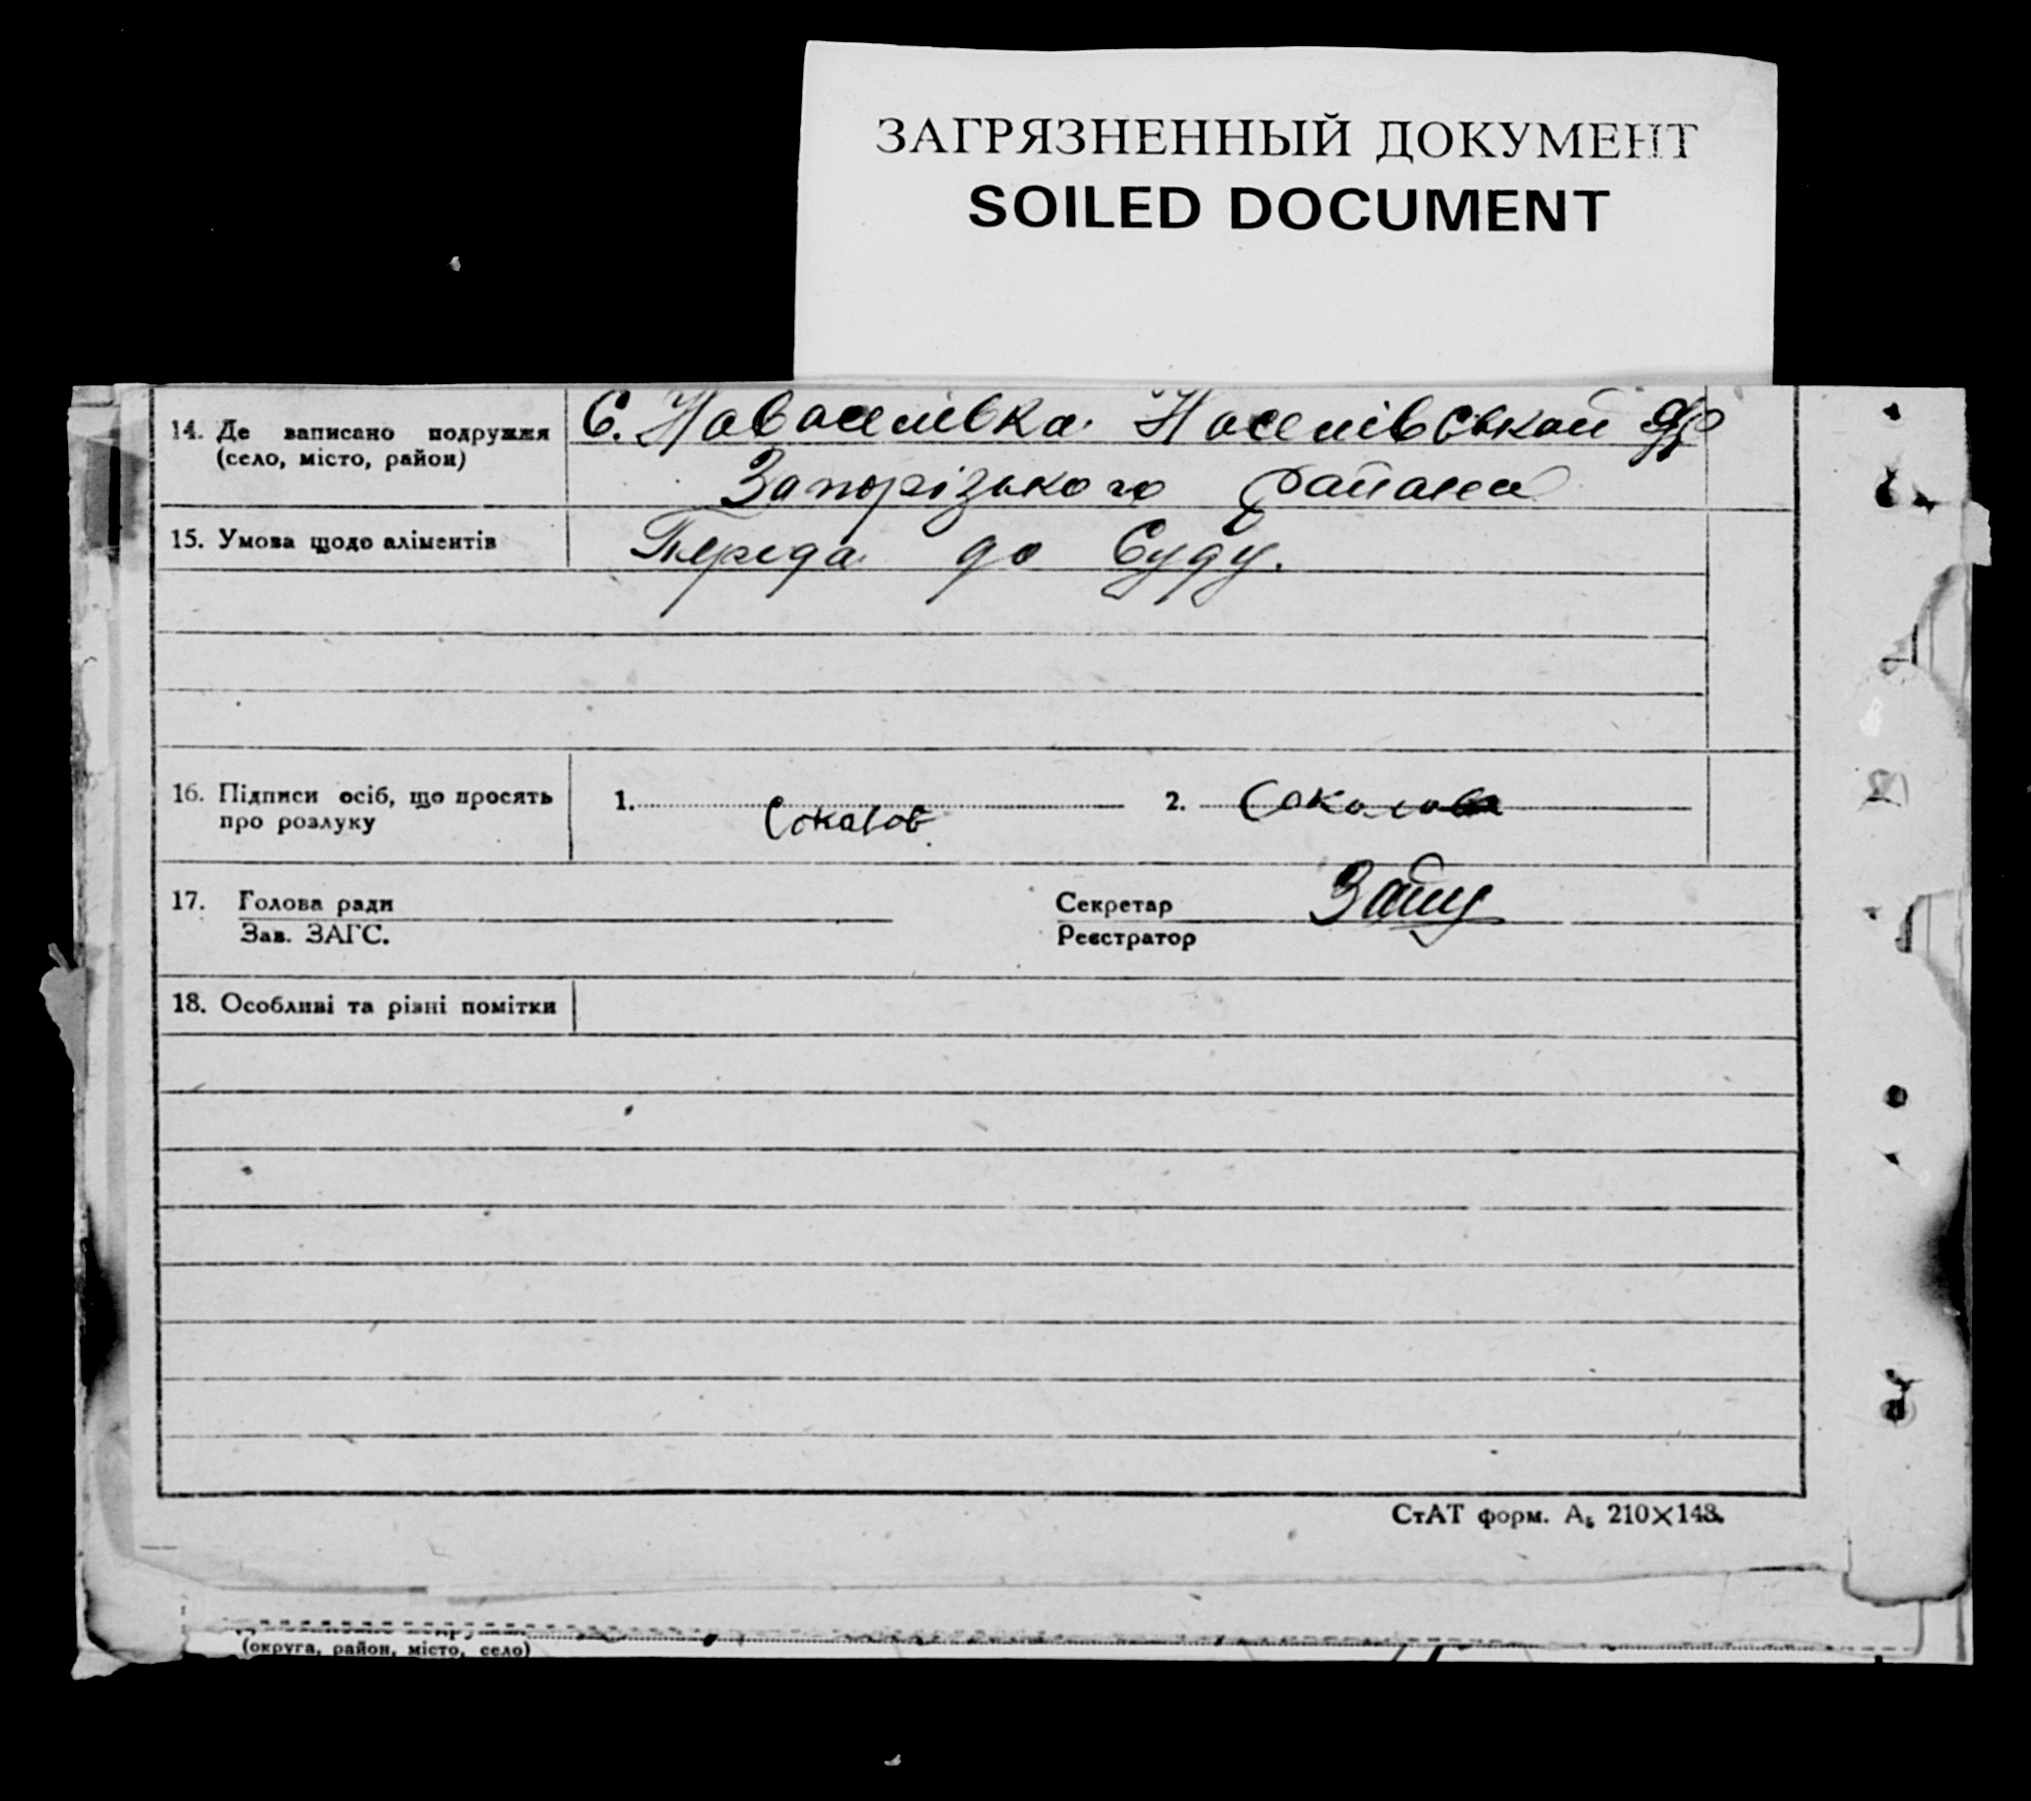 ЗАГРЯЗНЕННЫЙ ДОКУМЕНТ
SOILED DOCUMENT
14. Де записано подружжя
(село, місто, район)
С. Новоселівка
Запорізького району
15. Умова щодо аліментів
Переда до Суду.
16. Підписи осіб, що просять
про розлуку
1. Соколов
2. Соколова
17. Голова ради
Зав. ЗАГС.
Секретар
Реєстратор
18. Особливі та різні помітки
СтАТ форм. А5 210×148.
(округа, район, місто, село)